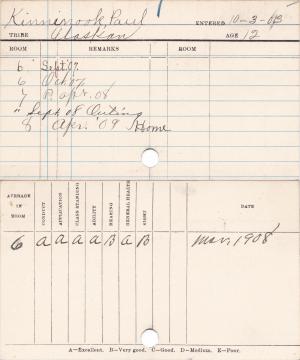 Kinninook Paul ENTERED 10-3-03
TRIBE Alaskan AGE 12
ROOM REMARKS ROOM
6 Sept 07
6 Oct 07
7 P. Apr. 08
" Sept 08 Outing
8 Apr. '09 Home
AVERAGE IN ROOM CONDUCT APPLICATION CLASS STANDING ABILITY BEARING GENERAL HEALTH SIGHT DATE
6 a a a a B a B Mar. 1908
A—Excellent. B—Very good. C—Good. D—Medium. E—Poor.